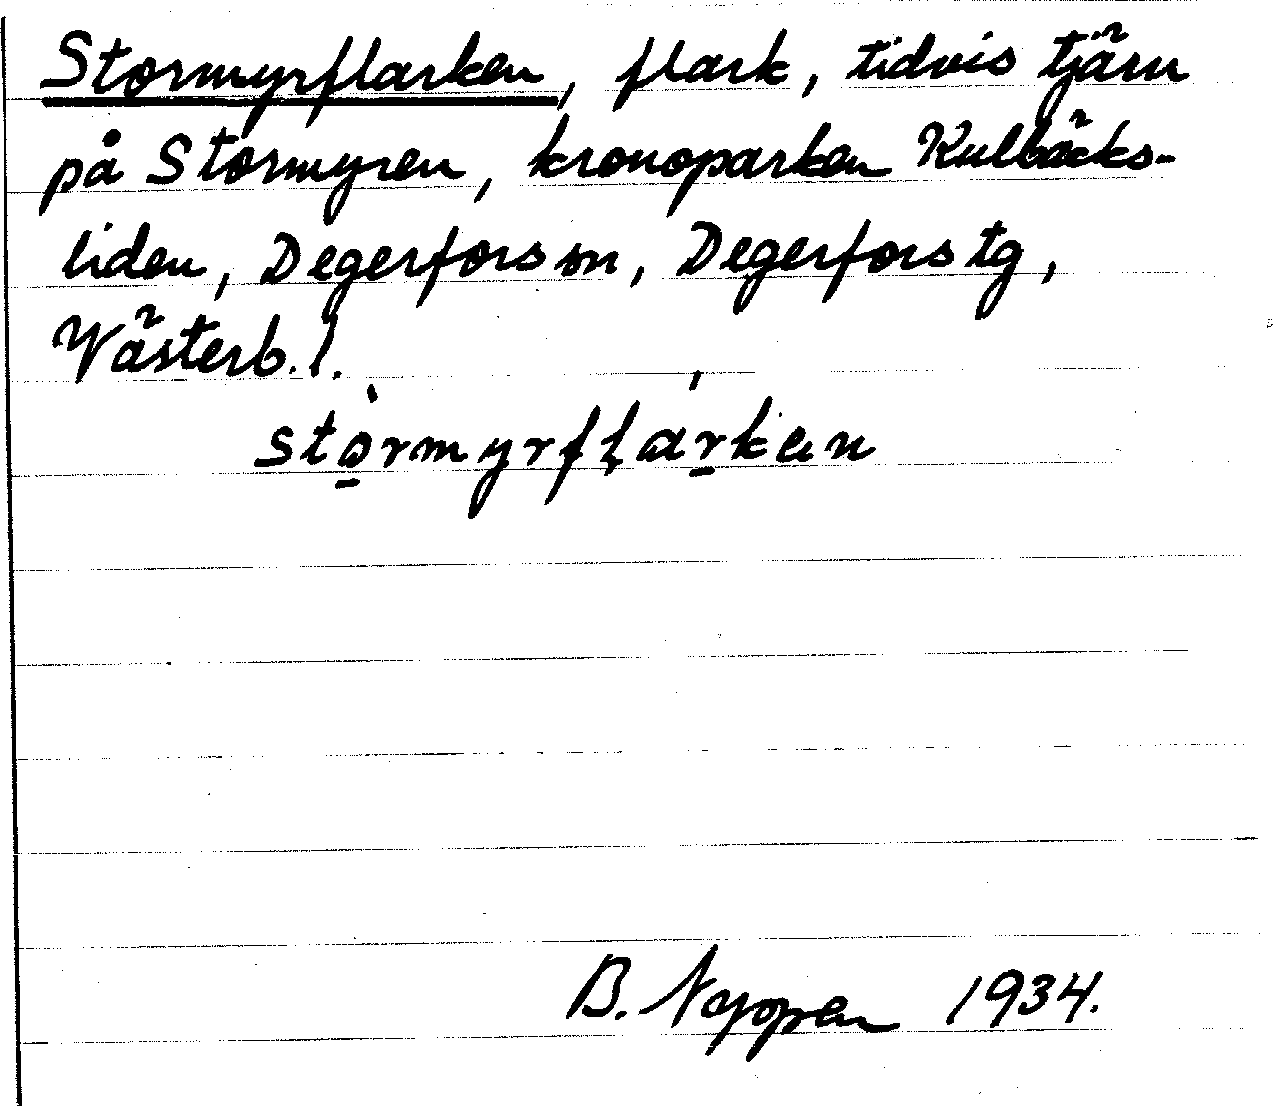 Stormyrflarken, flark, tidvis tjärn
på Stormyren, kronoparken Kulbäcks-
liden, Degerfors sn, Degerfors tg,
Västerb. l.
stormyrflarken
B. 1934.